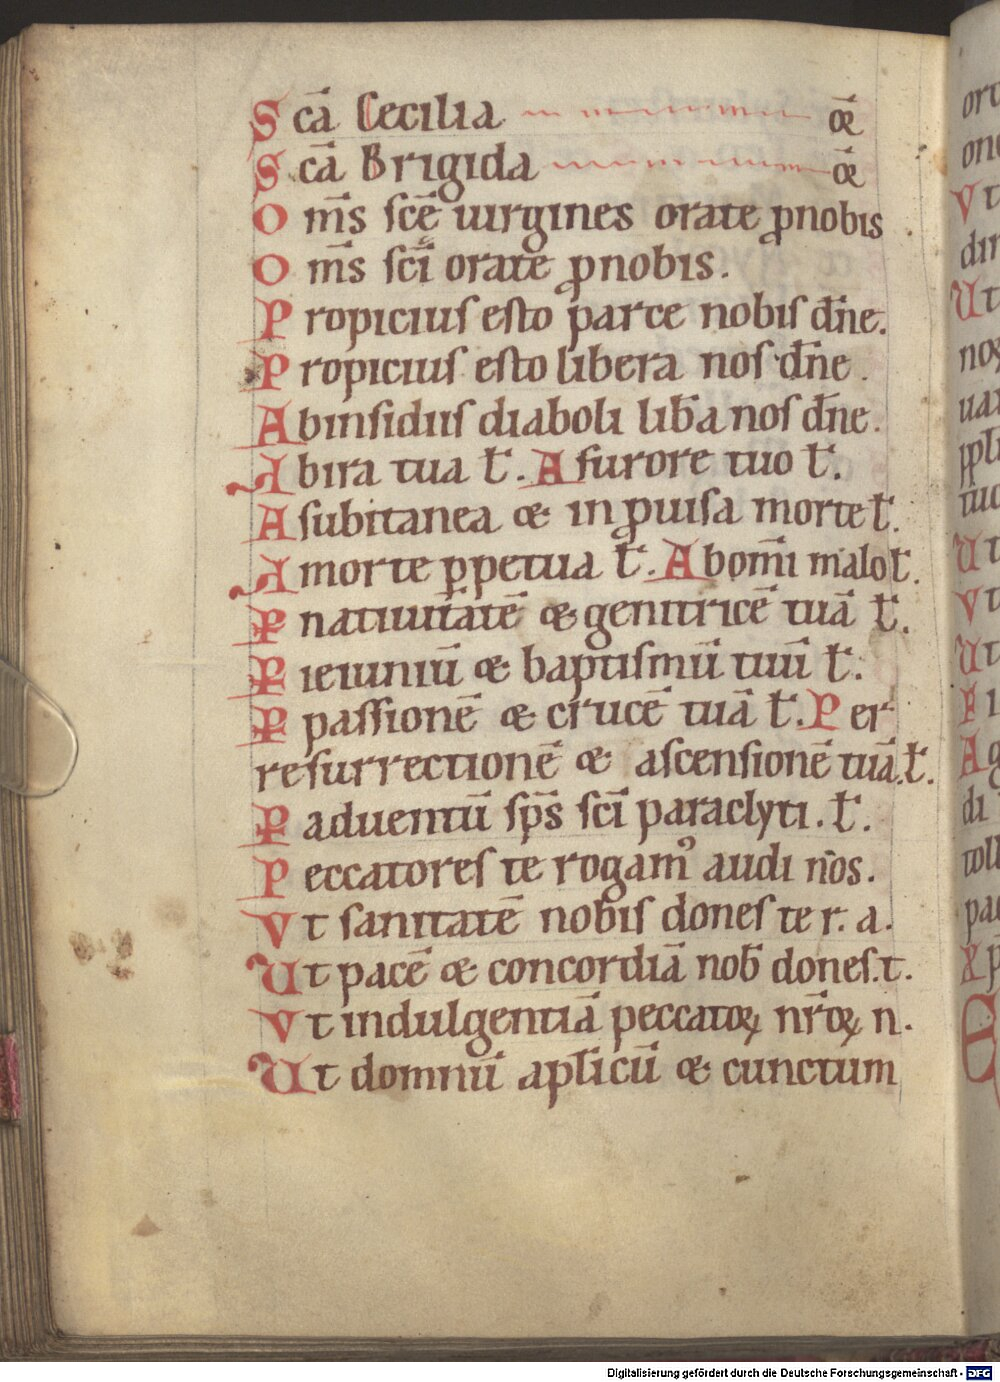 Scā Cecilia or̄
Scā Brigida or̄
Om̄s ſcē uirgines orate ꝓnobis
Om̄s ſcī orate ꝓnobis.
Propiciuſ eſto parce nobiſ dn̄e.
Propiciuſ eſto libera noſ dn̄e.
Abinſidiiſ diaboli lib̄a noſ dn̄e.
Abira tua t̄. A furore tuo t̄.
Aſubitanea & inꝓuiſa morte t̄.
Amorte ꝑpetua t̄. Abom̄i malo t̄.
Ꝑ natiuitatē & genitricē tuā t̄.
Ꝑ ieiuniū & baptiſmū tuū t̄.
Ꝑ paſſionē & crucē tuā t̄. Per
reſurrectionē & aſcenſionē tuā. t̄.
Ꝑ aduentū ſp̄s ſcī paraclyti. t̄.
Peccatoreſ te rogamꝰ audi nos.
Vt ſanitatē nobiſ doneſ te r. a.
Ut pacē & concordiā nob̄ doneſ. t.
Vt indulgentiā peccatoꝝ nr̄oꝝ n.
Ut domnū apl̄icū & cunctum
orť
one
Vt
dir
Ut
noſ
uar
tuo
Ut
Vt
Ut
Fi
Ag
di
toll
pac
Xp̄
Digitalisierung gefördert durch die Deutsche Forschungsgemeinschaft - DFG